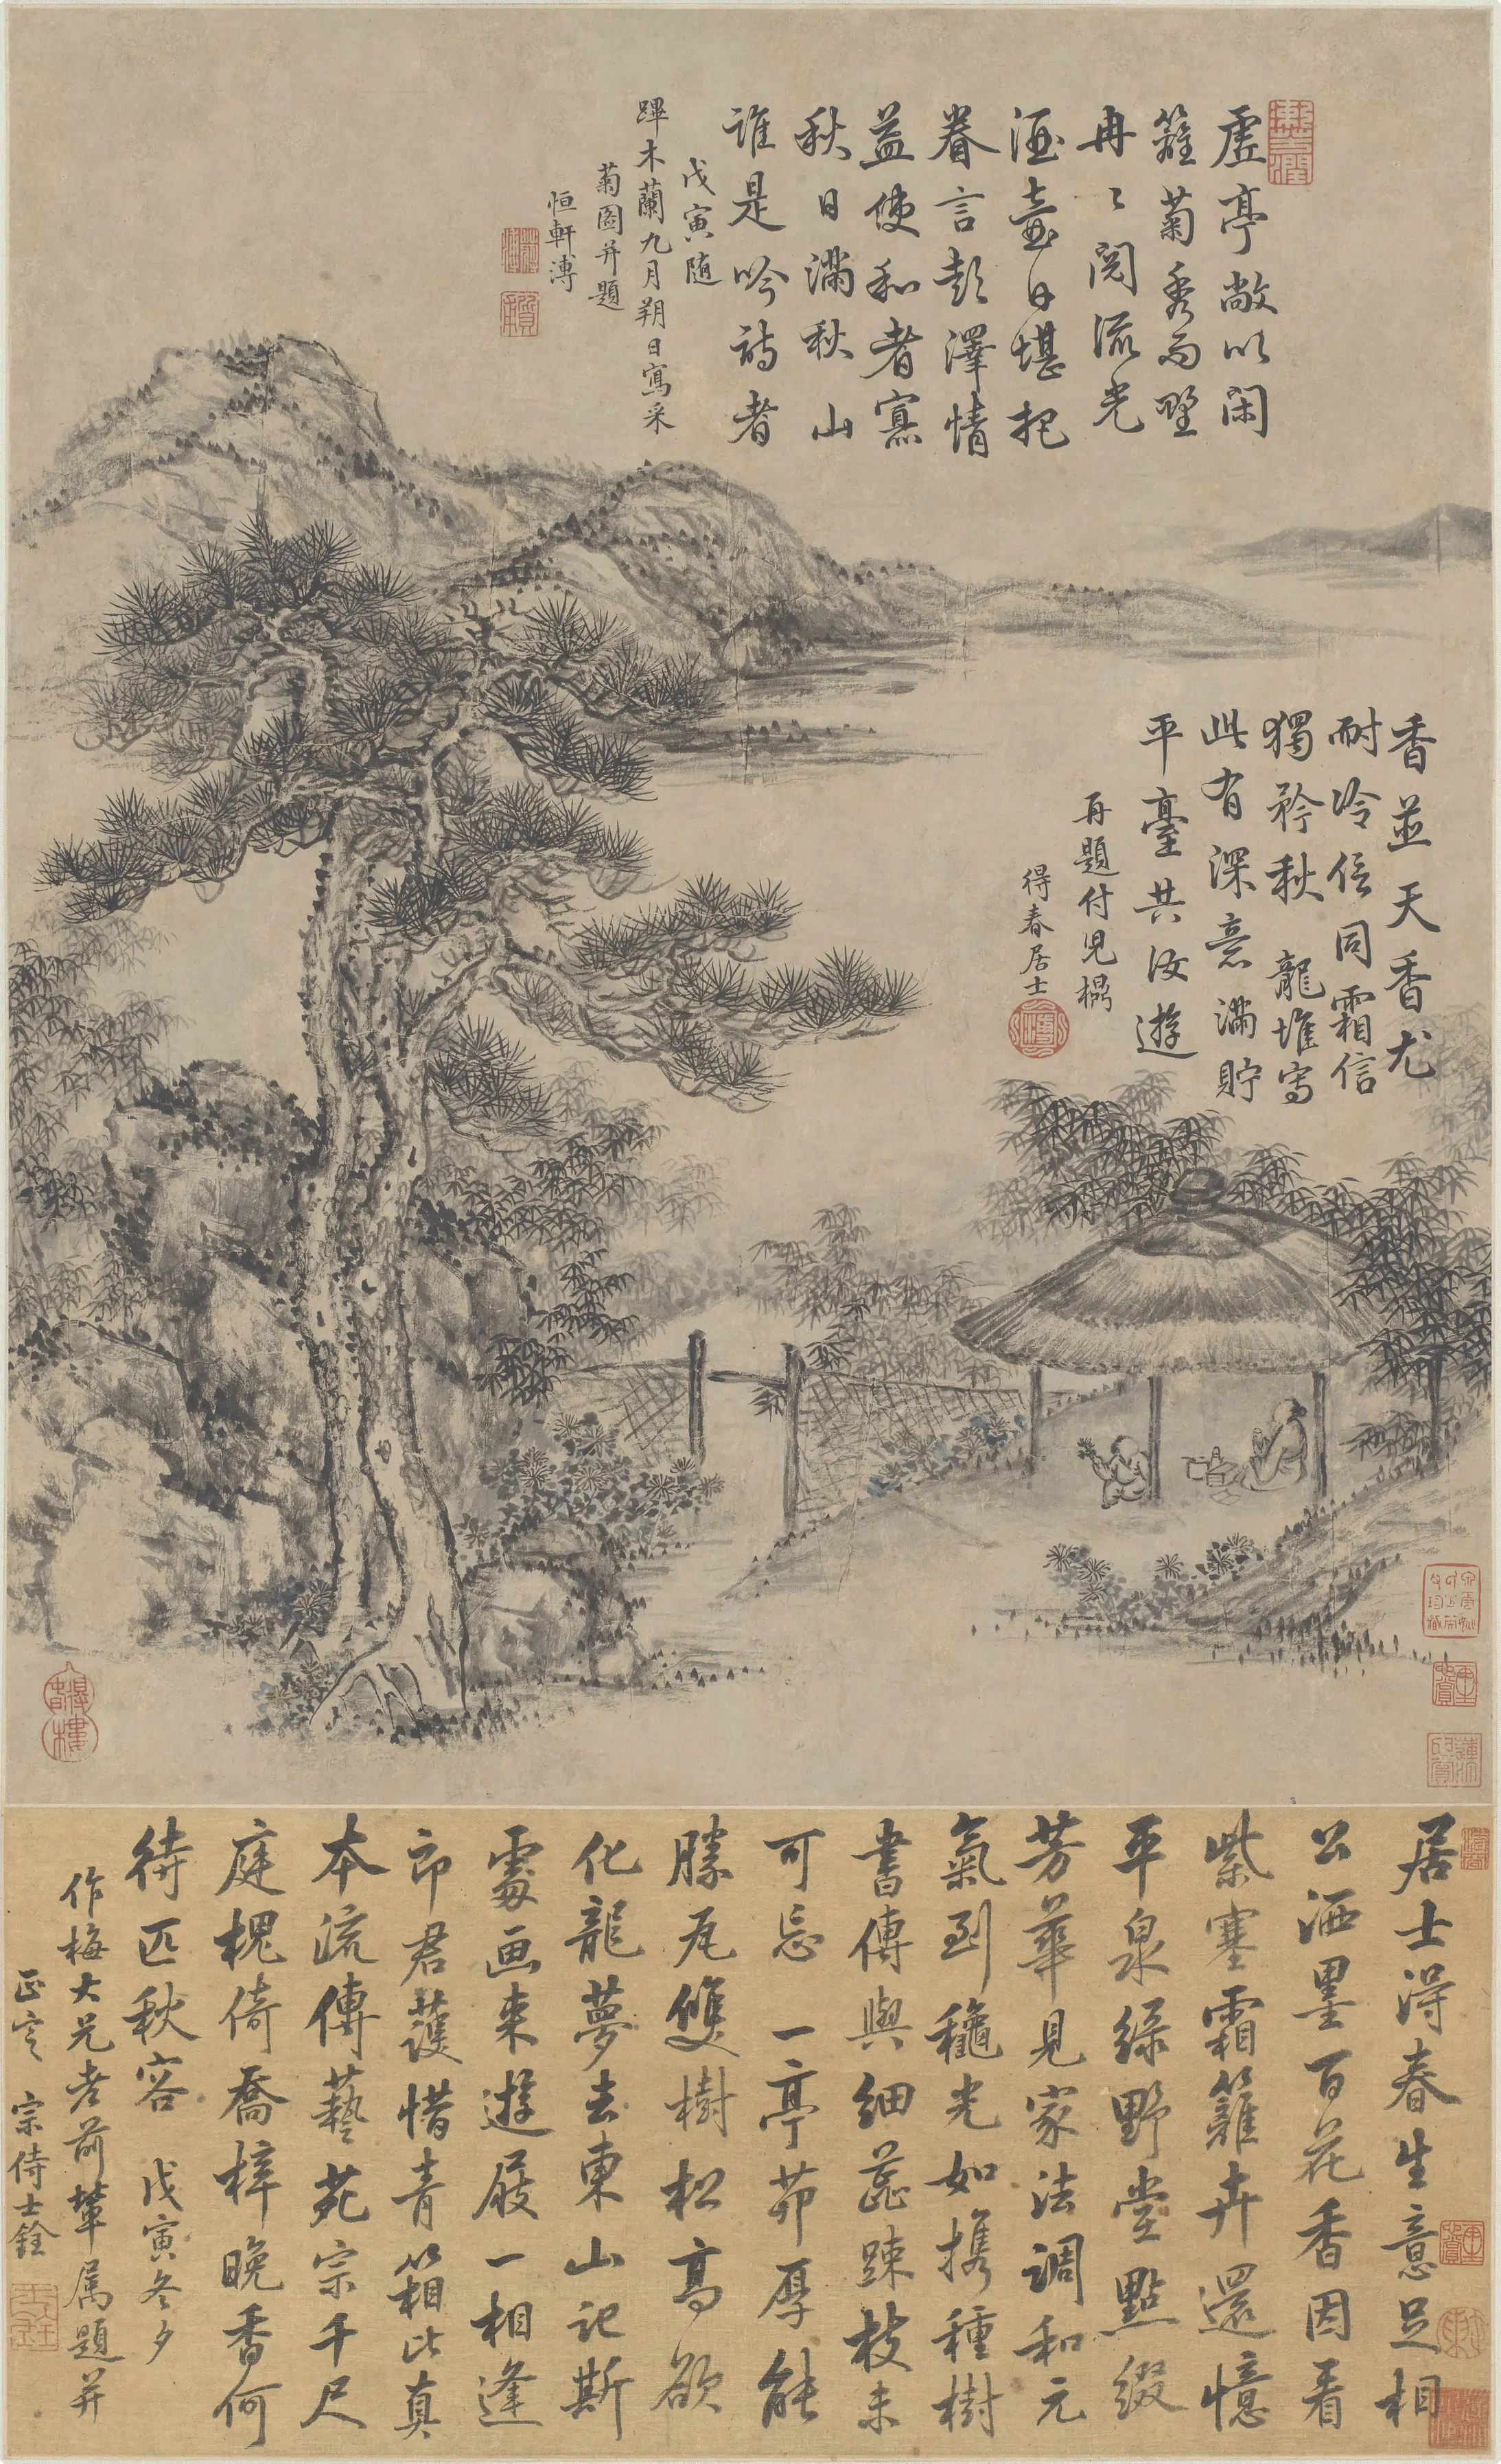 虛亭敞以閑
籬菊秀而野
冉〻閱流光
酒壺日堪把
眷言彭澤情
益使和者寡
秋日滿秋山
誰是吟詩者
戊寅随
蹕木蘭九月朔日寫采
菊圖并題
恒軒溥
香並天香尤
耐冷信同霜信
獨矜秋龍堆寫
此有深意滿貯
平臺共汝遊
再題付兒榻
得春居士
居士得春生意足相
公洒墨百花香因看
紫塞霜籬卉還憶
平泉綠野堂點綴
芳華見家法調和元
氣到穐光如携種樹
書傳與細蕋踈枝未
可忘一亭茆厚能
勝瓦雙樹松高欲
化龍夢去東山記斯
處画来遊屐一相逢
郎君護惜青箱比真
本流傳藝苑宗千尺
庭槐倚喬梓晚香何
待匹秋容戊寅冬夕
作梅大兄老前輩属題并
正之宗侍士銓